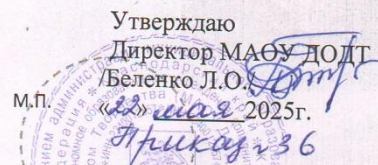 Утверждаю
Директор МАОУ ДОДТ
/Беленко Л.О./
М.П. «22» мая 2025г.
Приказ №36